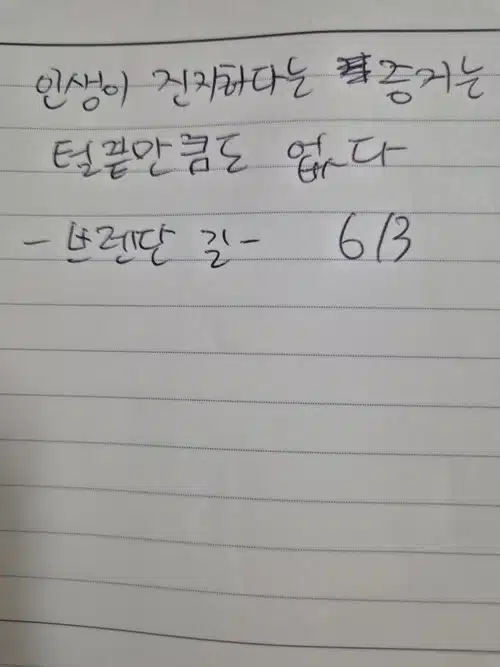 인생이 진지하다는 증거는
털끝만큼도 없다
- 브렌단 길 - 6/3